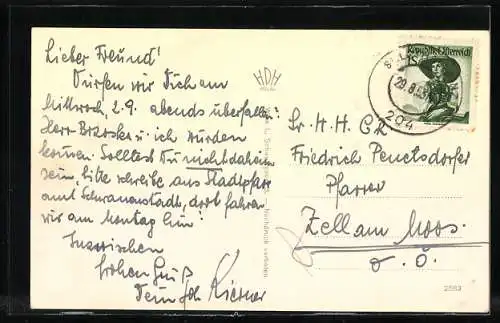 Lieber Freund!
Dürfen wir Dich am
Mittwoch, 2.9. abends überfallen?
Herr Brzoska u. ich würden
kommen. Solltest Du nicht daheim
sein, bitte schreibe ans Stadtpfarr
amt Schwanenstadt, dort fahren
wir am Montag hin!
Inzwischen
frohen Gruß
Dein Joh
HDH
Republik Österreich
1S
29.8.53
204
Sr. H. H. CR
Friedrich Penetsdorfer
Pfarrer
Zell am Moos.
O. Ö.
Nachdruck verboten
2563